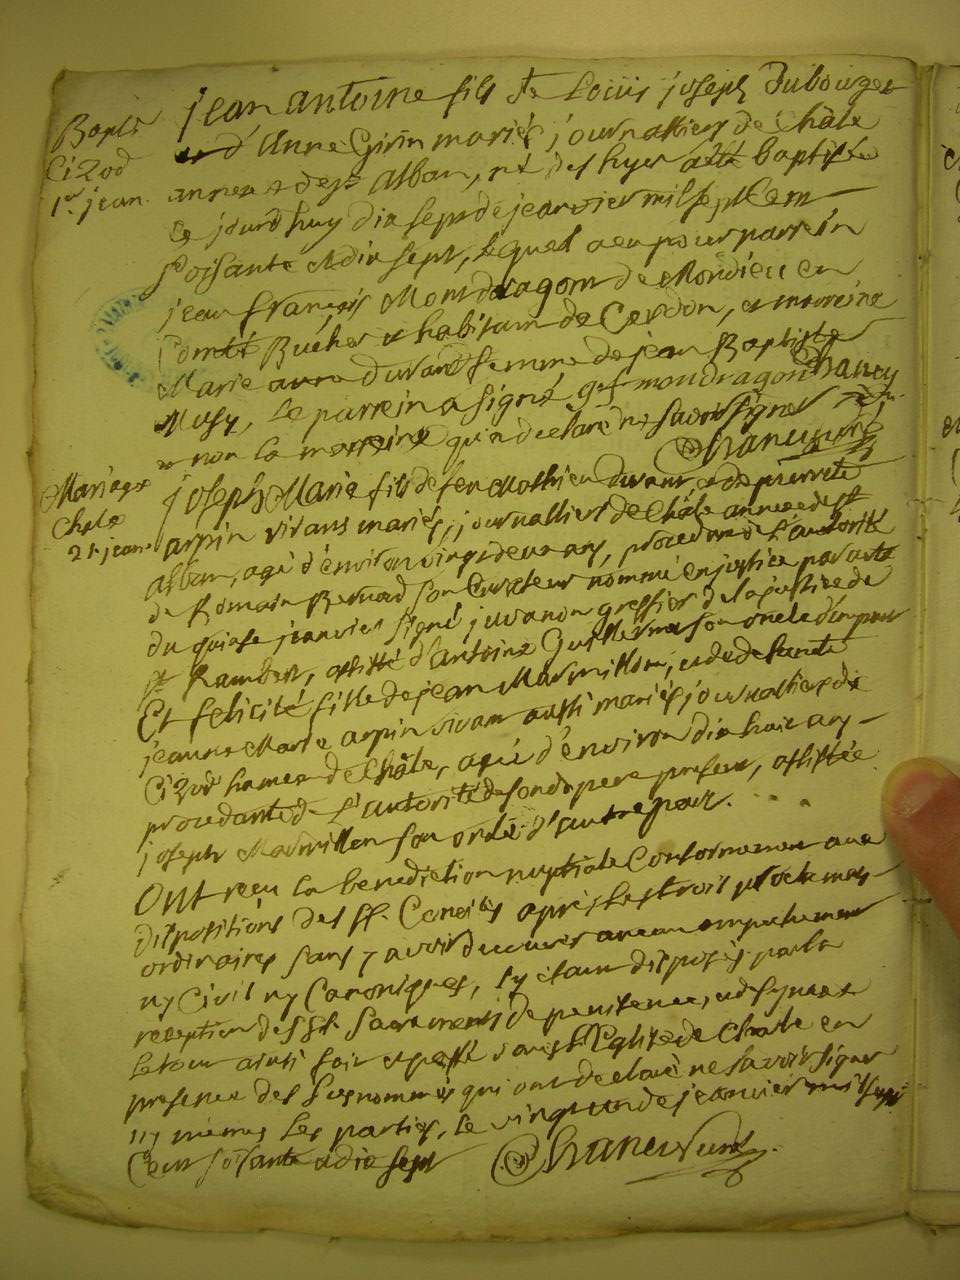 Bapt.
Cizod
1er jean.
jean antoine fils de Louis joseph Dubourget
et d'Anne Girin mariés journalliers de Châle
annexe de st alban, né des hyer a été baptisé
ce jourd'huy dix sept de jeanvier mil sept Cent
soisante et dix sept, lequel a eu pour parrein
jean françois Mondragon de Mondieu en
Comté Bucher et habitant de Cerdon, et marreine
Marie anne durand femme de jean Baptiste
Musy, le parrein a signé gf mondragon Chaney
et non la marreine qui a declaré ne savoir signer
Chaney curé
Mariage
Chale
21. jean.
joseph Marie fils de feu Mathieu durand et de pierrette
arpin vivans mariés, journalliers de Châle annexe de st
alban, agé d'environ vingt deux ans, procedant de l'autorité
de Romain Bernad son Curateur nommé en justice par acte
du quinse jeanvier signé juvanon greffier de la justice de
st Rambert, assisté d'antoine Guillermet son oncle d'un part
Et felicité fille de jean Marmillon, et de defunte
jeanne Marie arpin vivant aussi mariés journalliers de
Cizod hameau de Châle, agée d'environ dix huit ans
procedante de l'autorité de son dt pere present, assistée
joseph Marmillon son oncle d'autre part.
Ont reçu la benediction nuptiale Conformement aux
dispositions des ss. Conciles après les trois proclamas
ordinaires sans y avoir decouvert aucun empechement
ny Civil ny Canoniques, s'y étant disposés par la
reception des sts. sacrements de penitence, et de synaxe
le tout ainsi fait et passé dans l'Eglise de Chale en
presence des susnommés qui ont declaré ne savoir signer
ny mêmes les parties, le vingt un de jeanvier mil sept
Cent soisante et dix sept Chaney curé